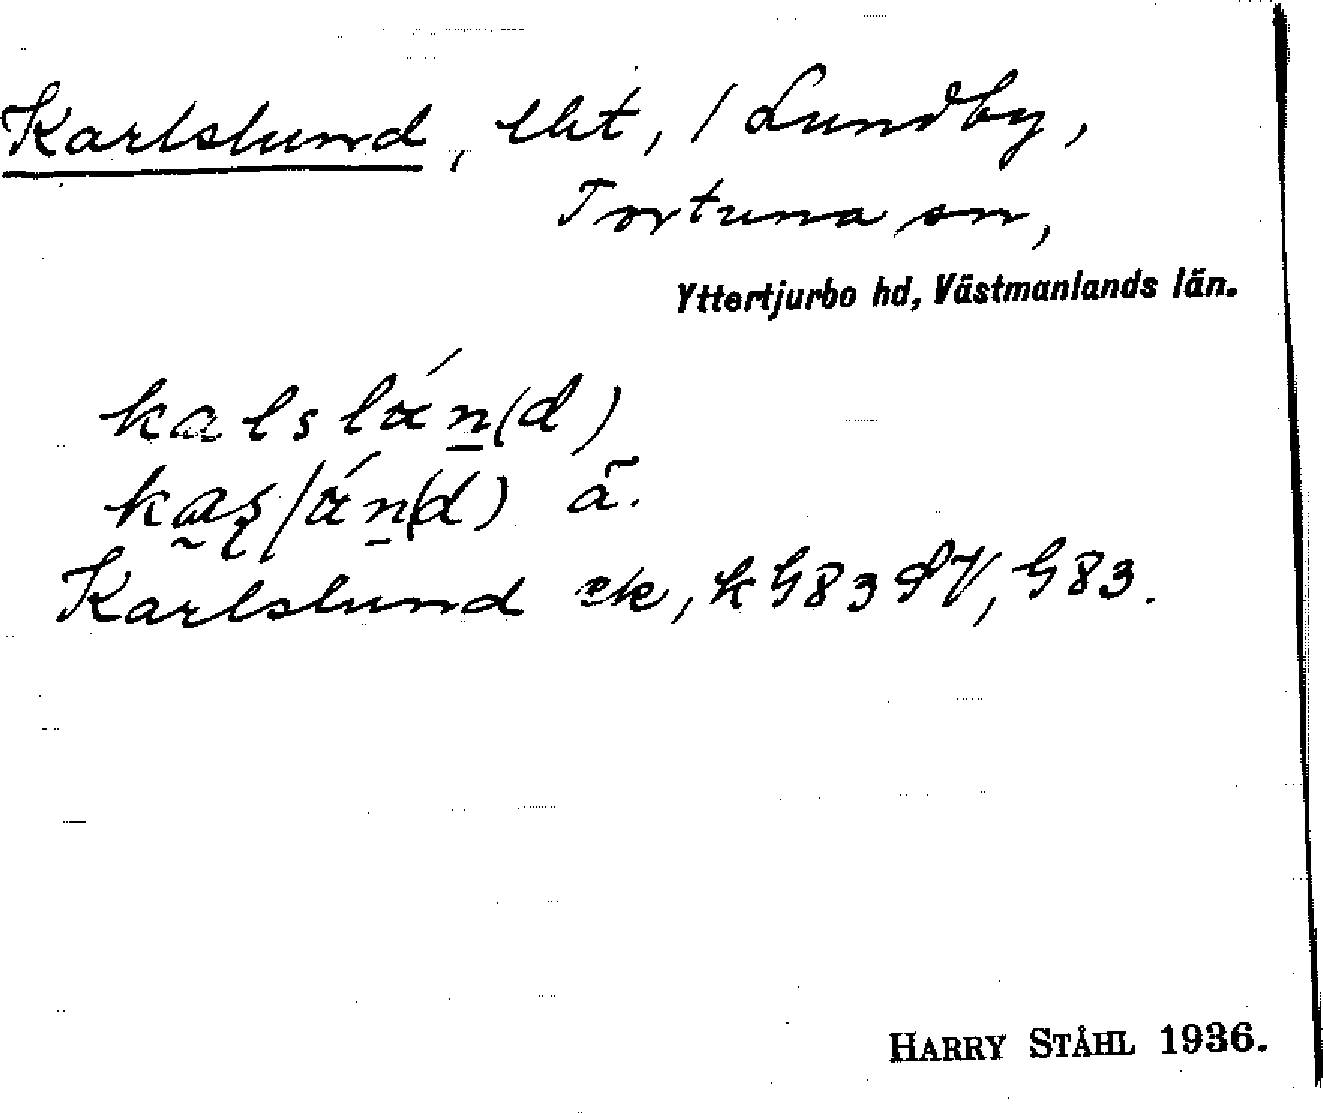 Karlslund, lht, / Lundby,
Tortuna sn,
Yttertjurbo hd, Västmanlands län.
kalslάn(d)
(d) ä.
Karlslund ek, k G83 SV, G83.
HARRY STÅHL 1936.